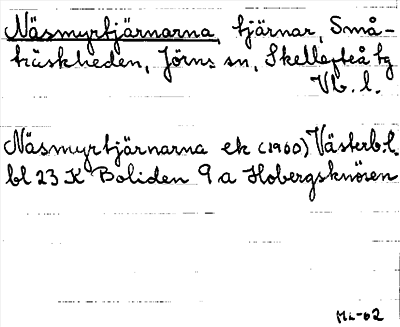 Näsmyrtjärnarna, tjärnar, Små-
träskheden, Jörns sn, Skellefteå tg
Vb. l.
Näsmyrtjärnarna ek (1960) Västerb. l.
bl 23 K Boliden 9 a Hobergsknösen